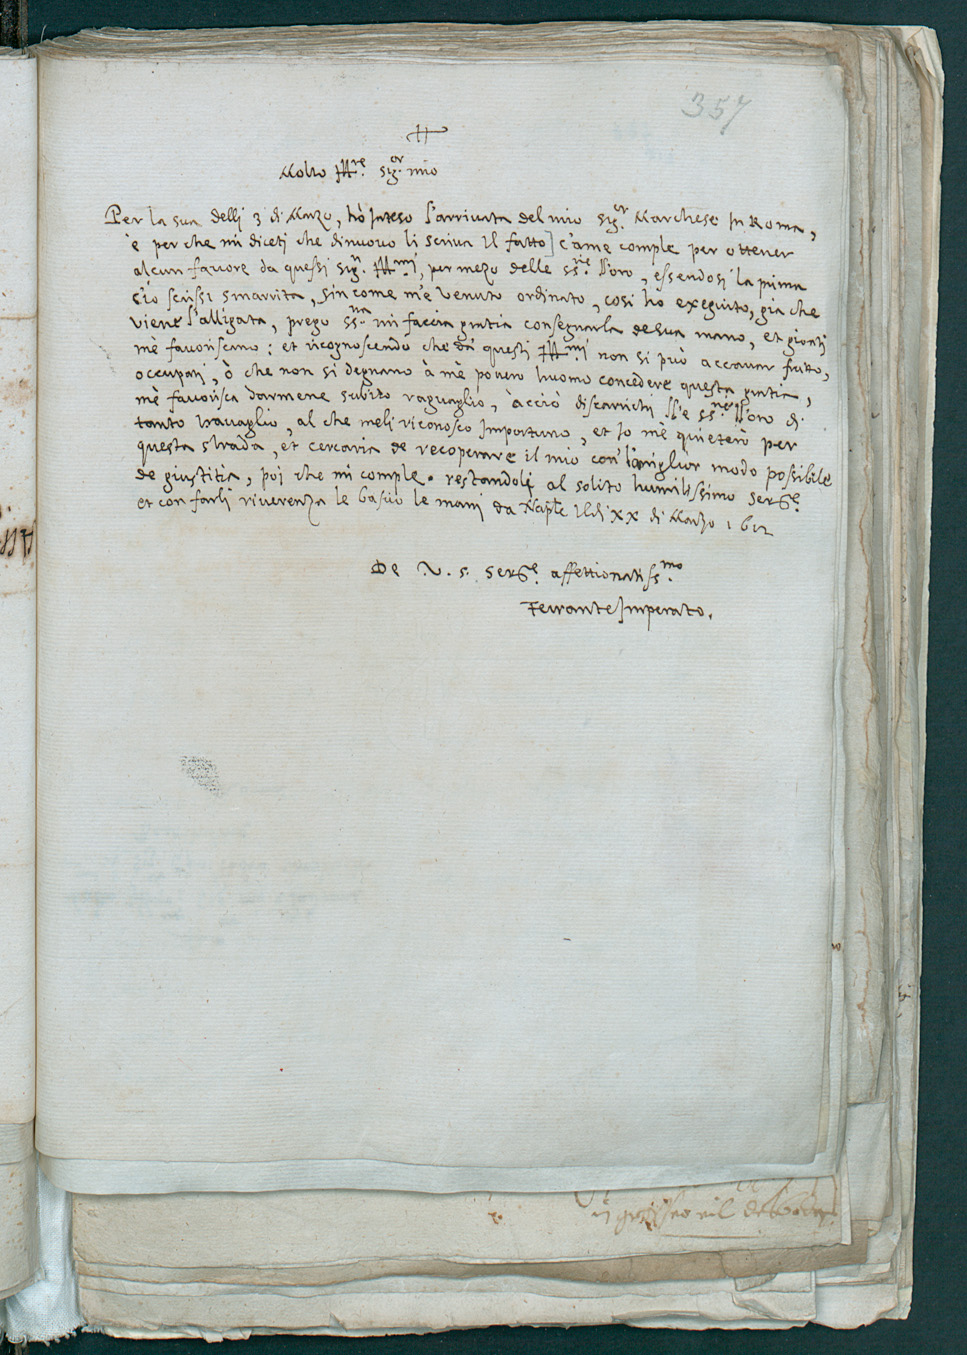 357
Molto Ill.re sig.or mio
Per la sua delli 3 di Marzo, hò inteso l'arrivata del mio sig.r Marchese in Roma,
è per che mi diceti che dinuovo li scriva il fatto] c'ame comple per ottener
alcun favore da questi sig.ri Ill.mi, per mezo delle ss.rie l'oro, essendosi la prima
ch'io scrissi smarrita, sin come m'è venuto ordinato, cosi ho exeguito, gia che
viene l'alligata, prego ss.ria mi faccia gratia consegnarla de sua mano, et gionti
mè favoriscano: et ricognoscendo che da questi Ill.mi non si può accavar frutto,
occupati, ò che non si degnano à mè povero huomo concedere questa gratia,
mè favorisca darmene subito raguaglio, acciò discarichi ll'e ss.rie ll'oro di
tanto travaglio, al che meli riconosco importuno, et Jo mè quieterò per
questa strada, et cercaria de recoperare il mio con l'miglior modo possibile
de giustitia, poi che mi comple. restandoli al solito humilissimo ser.re
et con farli riverenza le bascio le mani da Nap.le il dì XX di Marzo 1612
De V. S. ser.re affettionatiss.mo
Ferrante Imperato.